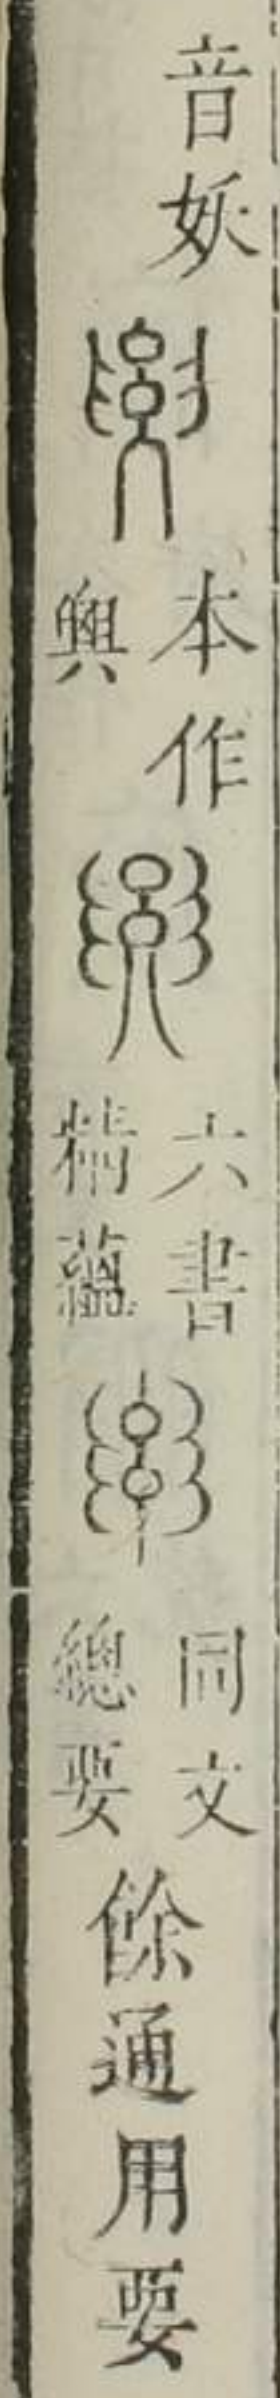 音妖
本作
𦥼
六書
精蘊
同文
總要
餘通用要